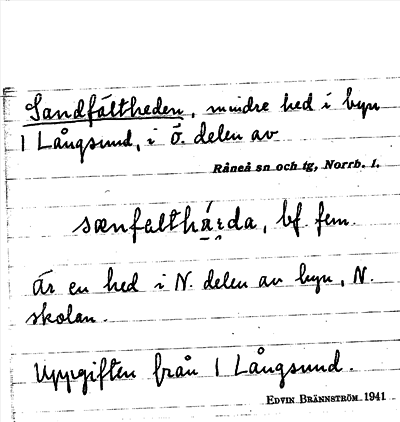 Sandfältheden, mindre hed i byn
1 Långsund, i ö. delen av
Råneå sn och tg, Norrb. l.
sænfælthä́ɛda, bf. fem.
Är en hed i N. delen av byn, N.
skolan.
Uppgiften från 1 Långsund.
EDVIN BRÄNNSTRÖM 1941